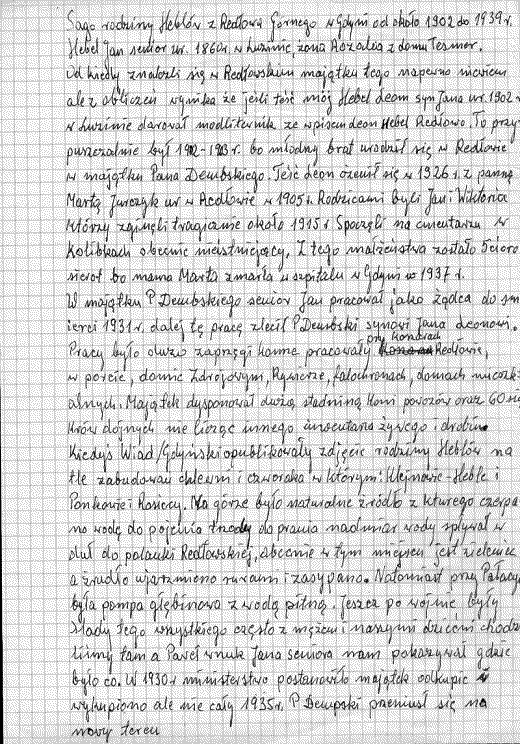 Saga rodziny Heblów z Redłowa Górnego w Gdyni od około 1902 do 1939 r.
Hebel Jan senior ur. 1860r. w Luzinie, żona Rozalia z domu Tesmer.
Od kiedy znaleźli się w Redłowskim majątku tego napewno niewiem
ale z obliczeń wynika że jeśli teść mój Hebel Leon syn Jana ur. 1902 r
w Luzinie darował modlitewnik ze wpisem Leon Hebel Redłowo. To przy-
puszczalnie był 1902-1903 r. bo młodszy brat urodził się w Redłowie
w majątku Pana Dembskiego. Teść Leon ożenił się w 1926 r. z panną
Martą Jurczyk ur w Redłowie w 1905 r. Rodzicami byli Jan i Wiktoria
którzy zginęli tragicznie około 1915 r Spoczęli na cmentarzu w
Kolibkach obecnie nieistniejący. Z tego małżeństwa zostało 5cioro
sierot bo mama Marta zmarła w szpitalu w Gdyni w 1937 r.
W majątku P Dembskiego senior Jan pracował jako żądca do śm
ierci 1931 r. dalej tę pracę zlecił P Dembski synowi Jana Leonowi.
Pracy było dużo zaprzęgi konne pracowały przy koszarach Redłowie,
w porcie, domie Zdrojowym, Rywierze, falochronach, domach mieszk
alnych. Majątek dysponował dużą stadniną koni powozów oraz 60 szt
krów dojnych nie licząc innego inwentarza żywego i drobiu.
Kiedyś Wiad/Gdyński opublikowały zdjęcie rodziny Heblów na
tle zabudowań chlewni i czworaka w którym: Klejnowie - Heble i
Ponkowie i Roniccy. Na górze było naturalne źródło z którego czerpa
no wodę do pojenia trzody do prania nadmiar wody spływał w
dół do polanki Redłowskiej, obecnie w tym miejscu jest zieleniec
a źródło ujarzmiono rurami i zasypano. Natomiast przy Pałacy
była pompa głębinowa z wodą pitną. Jeszcz po wojnie były
ślady tego wszystkiego często z mężem i naszymi dziećmi chodzi
liśmy tam a Paweł wnuk Jana seniora nam pokazywał gdzie
było co. W 1930 r ministerstwo postanowiło majątek odkupić
wykupiono ale nie cały 1935 r. P Dempski przeniósł się na
nowy teren